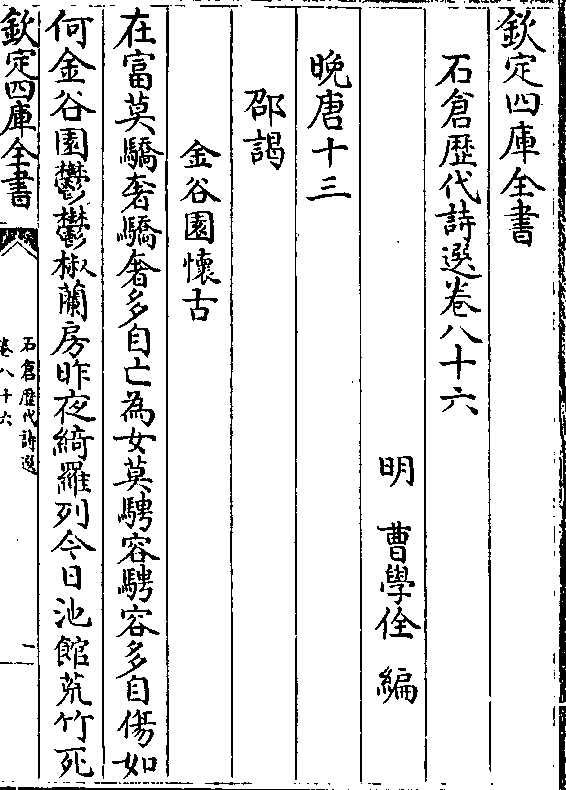 欽定四庫全書
石倉歴代詩選卷八十六
明 曹學佺 編
晚唐十三
邵謁
金谷園懷古
在富莫驕奢驕奢多自亡為女莫騁容騁容多自傷如
何金谷園鬱鬱椒蘭房昨夜綺羅列今日池館荒竹死
欽定四庫全書
石倉歴代詩選
卷八十六
一